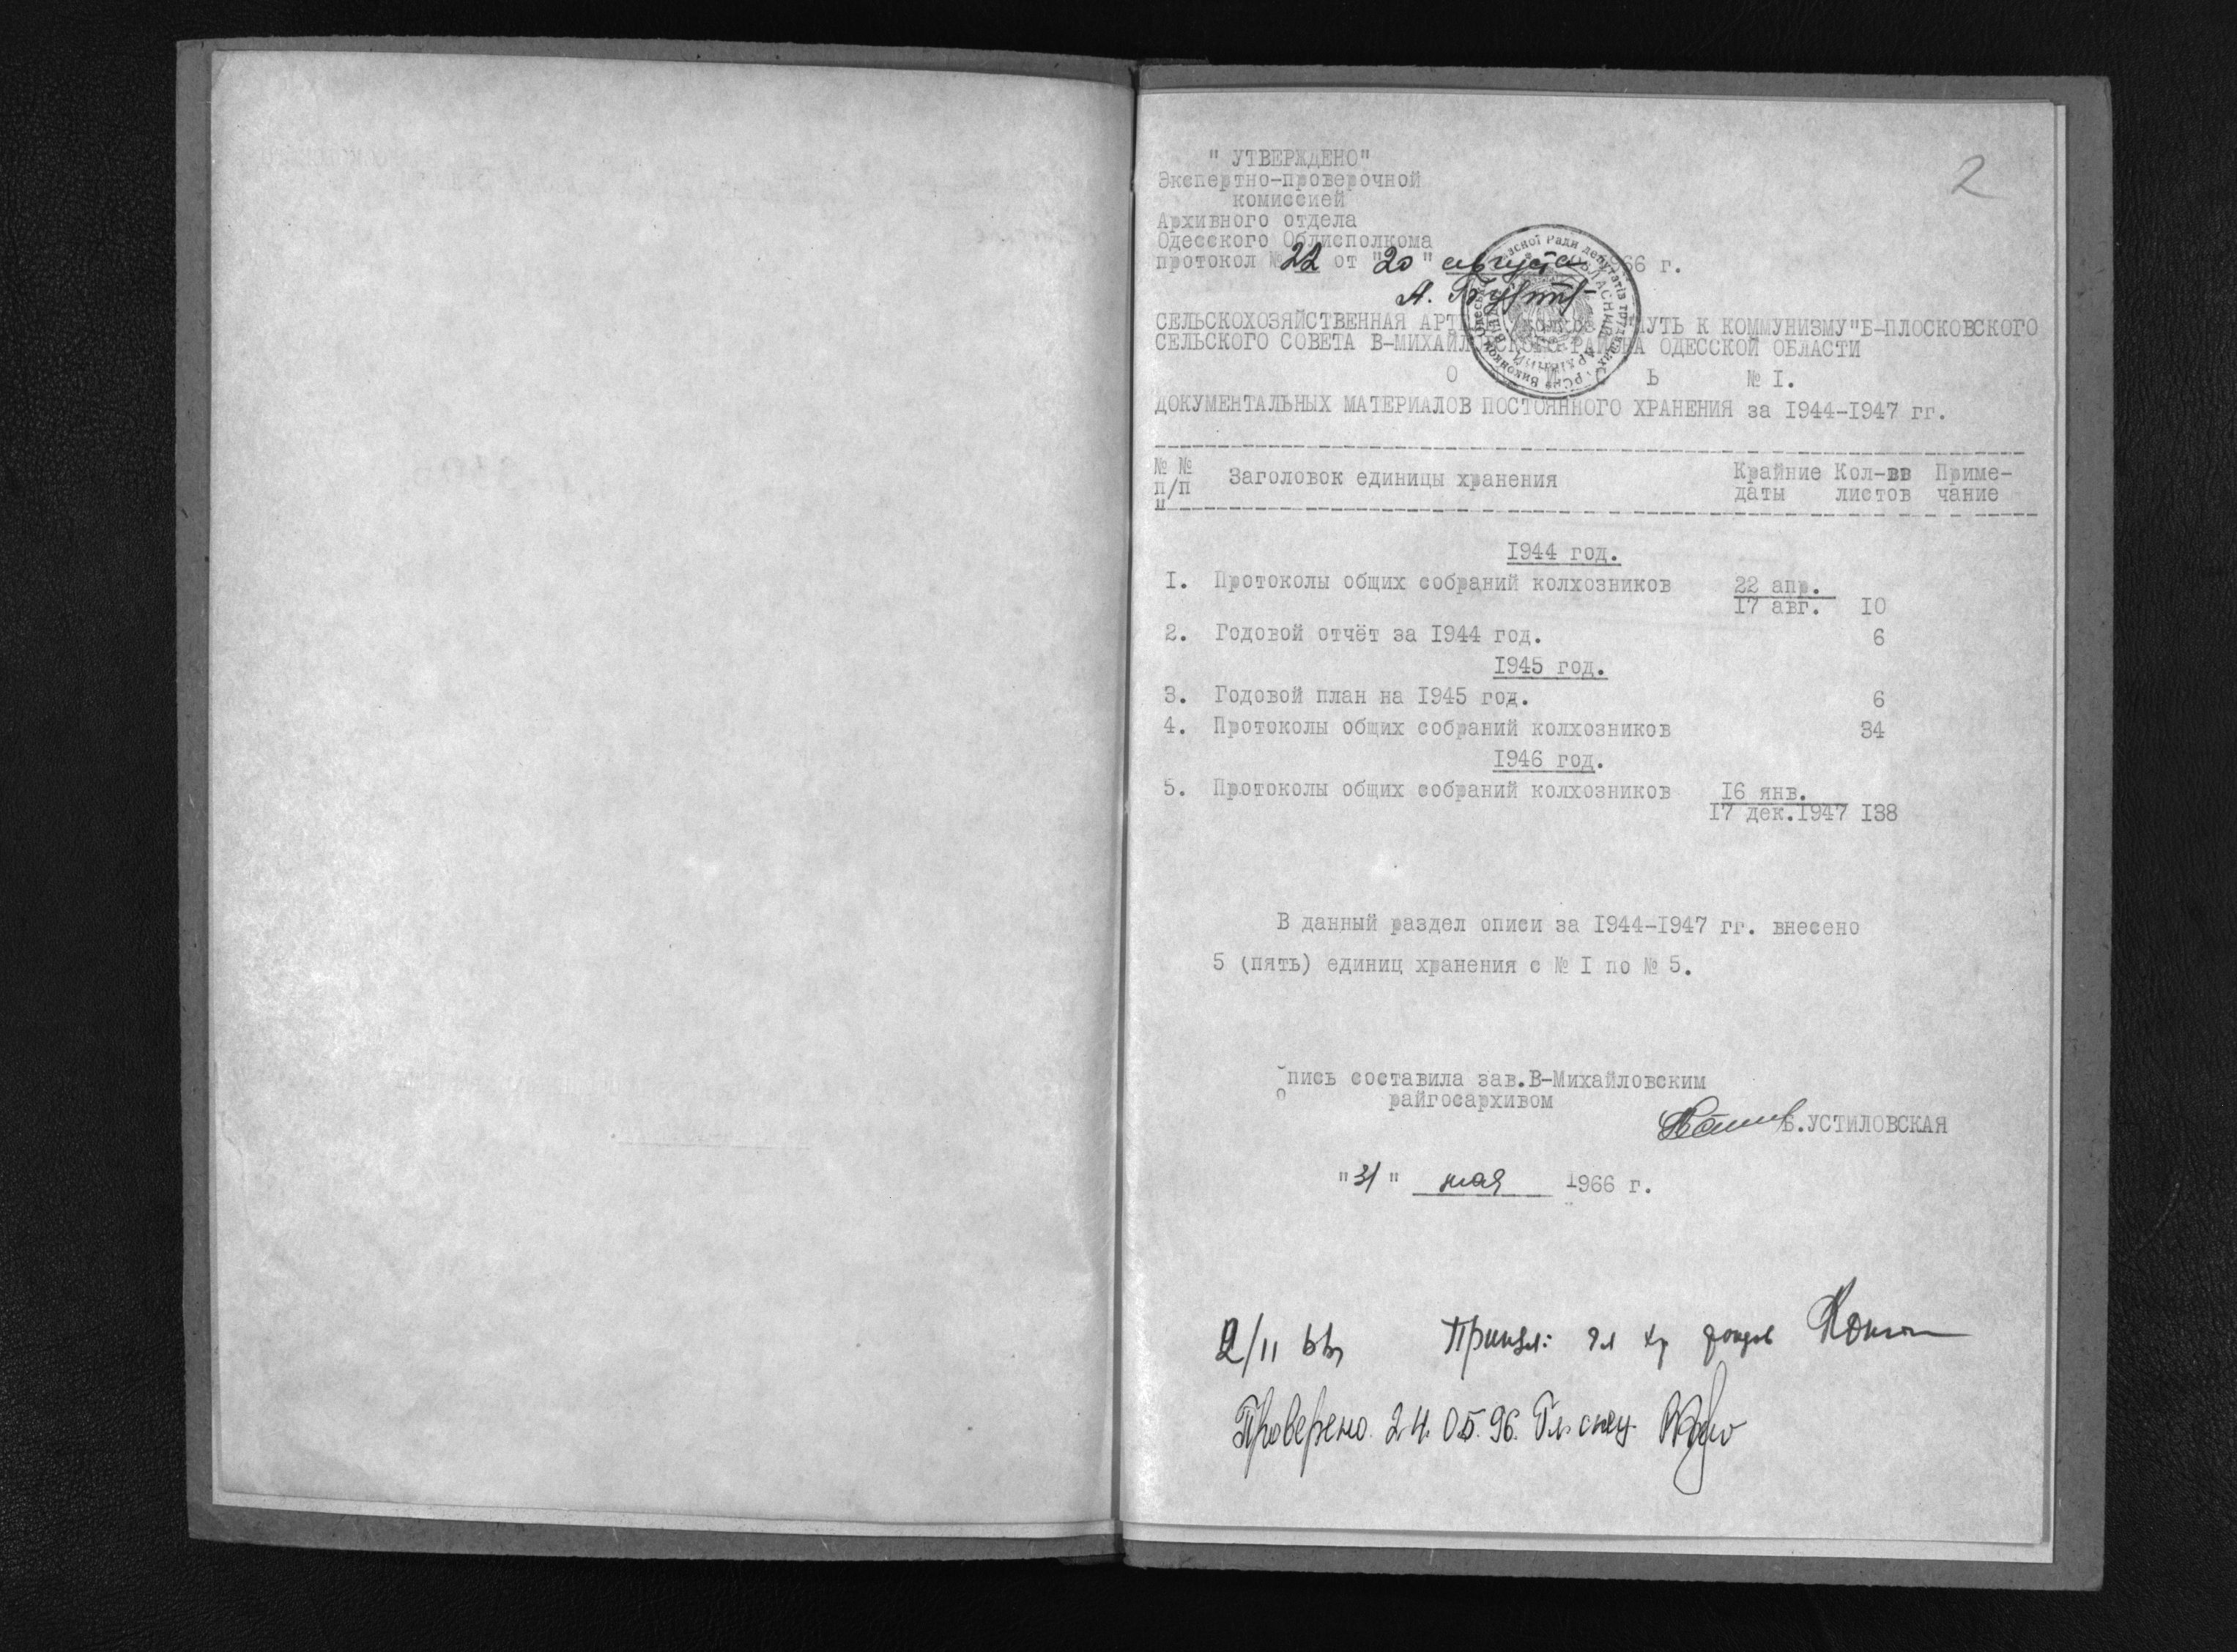 2
" УТВЕРЖДЕНО"
Экспертно-проверочной
комиссией
Архивного отдела
Одесского Облисполкома
протокол № 22 от "20" августа 1966 г.
СЕЛЬСКОХОЗЯЙСТВЕННАЯ АРТЕЛЬ "ПУТЬ К КОММУНИЗМУ"Б-ПЛОСКОВСКОГО
СЕЛЬСКОГО СОВЕТА В-МИХАЙЛОВСКОГО РАЙОНА ОДЕССКОЙ ОБЛАСТИ
О П И С Ь № I.
ДОКУМЕНТАЛЬНЫХ МАТЕРИАЛОВ ПОСТОЯННОГО ХРАНЕНИЯ за I944-I947 гг.
№ № Заголовок единицы хранения Крайние Кол-вв Приме-
п/п даты листов чание
I944 год.
I. Протоколы общих собраний колхозников 22 апр.
I7 авг. I0
2. Годовой отчёт за I944 год. 6
I945 год.
3. Годовой план на I945 год. 6
4. Протоколы общих собраний колхозников 34
I946 год.
5. Протоколы общих собраний колхозников I6 янв.
I7 дек.I947 I38
В данный раздел описи за I944-I947 гг. внесено
5 (пять) единиц хранения с № I по № 5.
опись составила зав.В-Михайловским
райгосархивом
Б.УСТИЛОВСКАЯ
"31" мая 1966 г.
2/II 66
Проверено 24.05.96. Гл. спец.